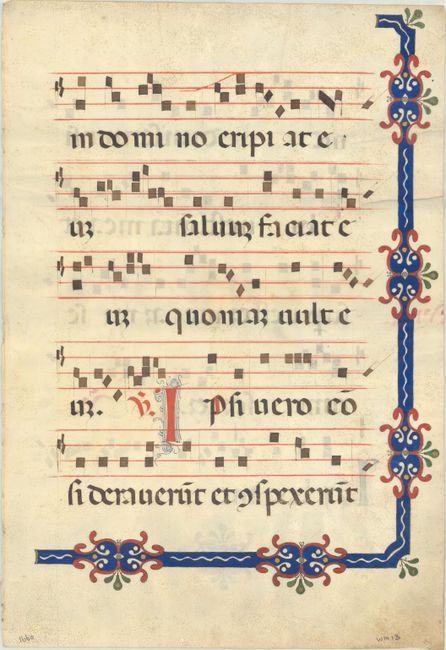 in do mi no eripi at e
uʒ saluuʒ faciat e
uʒ quoniaʒ uult e
uʒ. ℟. Ipsi uero cō
siderauerūt et ꝯspexerūt
1660 WM13